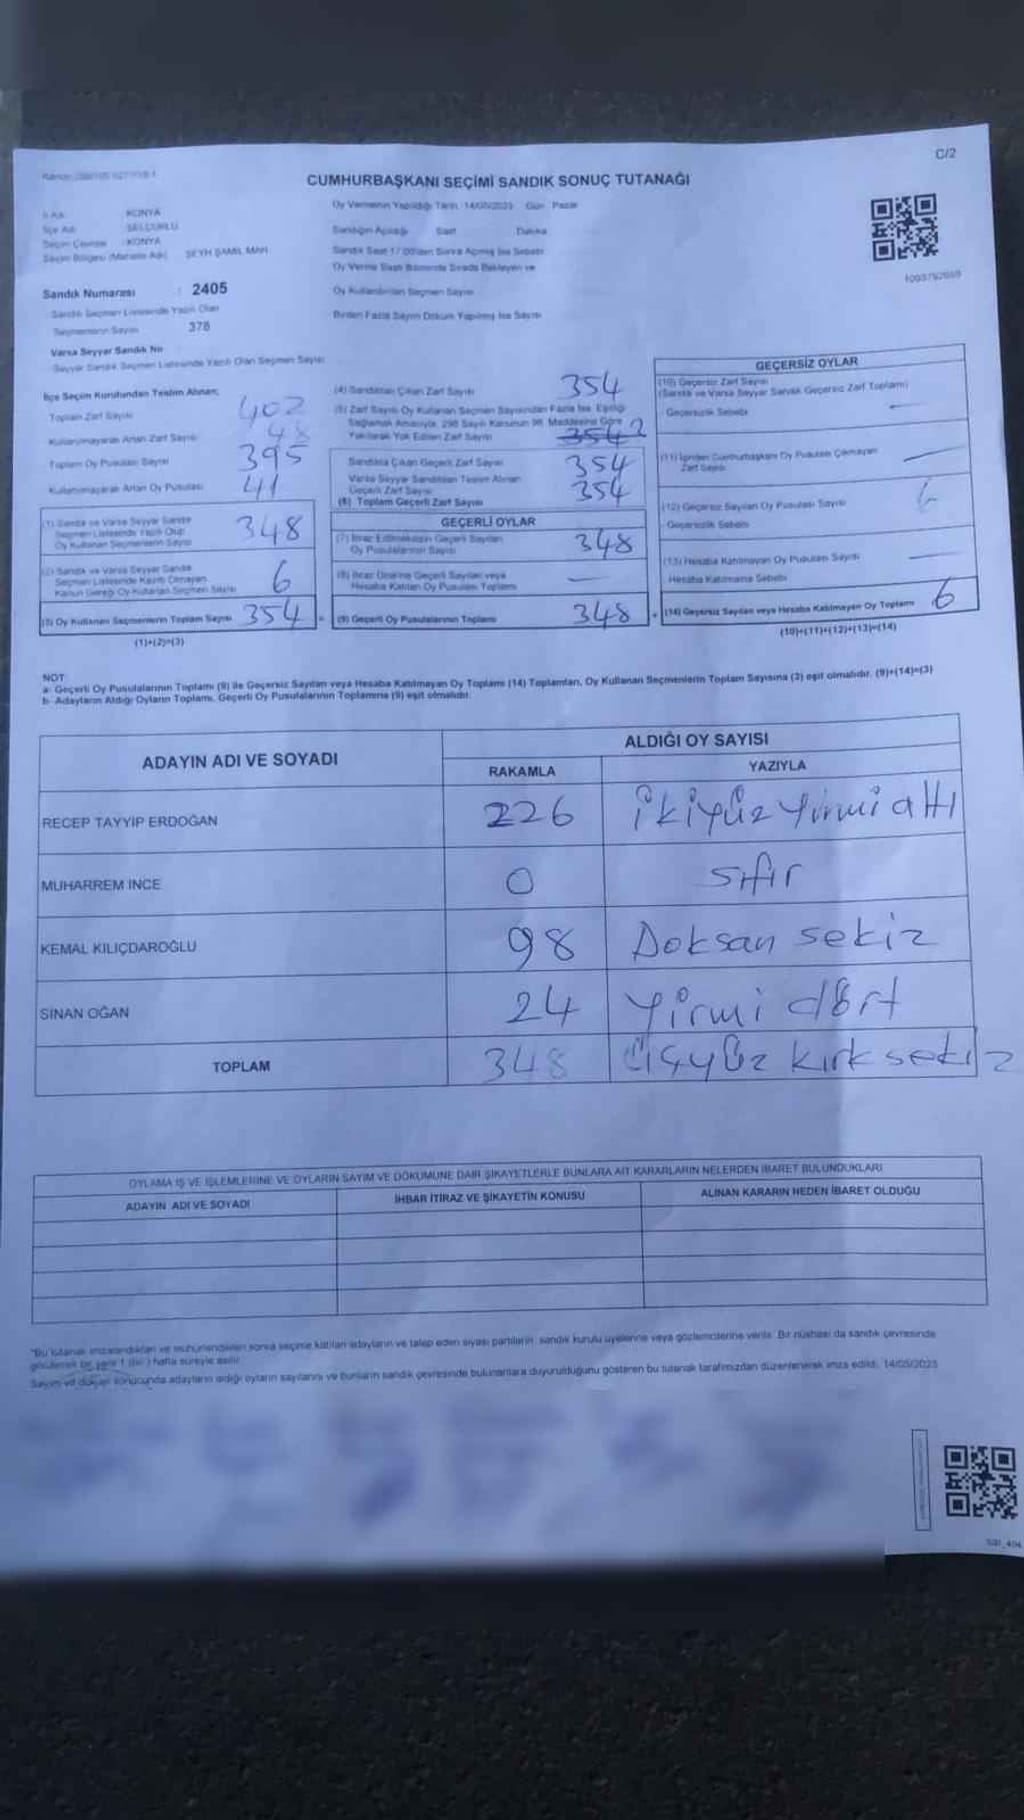 C/2
CUMHURBAŞKANI SEÇİMİ SANDIK SONUÇ TUTANAĞI
İl Adı : KONYA
İlçe Adı : SELÇUKLU
Seçim Çevresi : KONYA
Seçim Bölgesi (Mahalle Adı) : ŞEYH ŞAMİL MAH
Sandık Numarası : 2405
Sandık Seçmen Listesinde Yazılı Olan
Seçmenlerin Sayısı 378
Varsa Seyyar Sandık No
Seyyar Sandık Seçmen Listesinde Yazılı Olan Seçmen Sayısı
Oy Vermenin Yapıldığı Tarih: 14/05/2023 Gün: Pazar
Sandığın Açıldığı Saat Dakika
Sandık Saat 17:00'den Sonra Açılmış İse Sebebi
Oy Verme Saati Bitiminde Sırada Bekleyen ve
Oy Kullandırılan Seçmen Sayısı
Birden Fazla Sayım Döküm Yapılmış İse Sayısı
İlçe Seçim Kurulundan Teslim Alınan;
Toplam Zarf Sayısı 402
Kullanılmayarak Artan Zarf Sayısı 48
Toplam Oy Pusulası Sayısı 395
Kullanılmayarak Artan Oy Pusulası 41
(1) Sandık ve Varsa Seyyar Sandık
Seçmen Listesinde Yazılı Olup
Oy Kullanan Seçmenlerin Sayısı 348
(2) Sandık ve Varsa Seyyar Sandık
Seçmen Listesinde Kayıtlı Olmayan
Kanun Gereği Oy Kullanan Seçmen Sayısı 6
(3) Oy Kullanan Seçmenlerin Toplam Sayısı 354
(1)+(2)=(3)
(4) Sandıktan Çıkan Zarf Sayısı 354
(5) Zarf Sayısı Oy Kullanan Seçmen Sayısından Fazla İse, Eşitliği
Sağlamak Amacıyla, 298 Sayılı Kanunun 98. Maddesine Göre
Yakılarak Yok Edilen Zarf Sayısı 354 2
Sandıkta Çıkan Geçerli Zarf Sayısı 354
Varsa Seyyar Sandıktan Teslim Alınan
Geçerli Zarf Sayısı
(6) Toplam Geçerli Zarf Sayısı 354
GEÇERLİ OYLAR
(7) İtiraz Edilmeksizin Geçerli Sayılan
Oy Pusulalarının Sayısı 348
(8) İtiraz Üzerine Geçerli Sayılan veya
Hesaba Katılan Oy Pusulası Toplamı —
(9) Geçerli Oy Pusulalarının Toplamı 348
GEÇERSİZ OYLAR
(10) Geçersiz Zarf Sayısı
(Sandık ve Varsa Seyyar Sandık Geçersiz Zarf Toplamı) —
Geçersizlik Sebebi
(11) İçinden Cumhurbaşkanı Oy Pusulası Çıkmayan
Zarf Sayısı —
(12) Geçersiz Sayılan Oy Pusulası Sayısı 6
Geçersizlik Sebebi
(13) Hesaba Katılmayan Oy Pusulası Sayısı —
Hesaba Katılmama Sebebi
(14) Geçersiz Sayılan veya Hesaba Katılmayan Oy Toplamı 6
(10)+(11)+(12)+(13)=(14)
NOT:
a- Geçerli Oy Pusulalarının Toplamı (9) ile Geçersiz Sayılan veya Hesaba Katılmayan Oy Toplamı (14) Toplamları, Oy Kullanan Seçmenlerin Toplam Sayısına (3) eşit olmalıdır. (9)+(14)=(3)
b- Adayların Aldığı Oyların Toplamı, Geçerli Oy Pusulalarının Toplamına (9) eşit olmalıdır.
ADAYIN ADI VE SOYADI ALDIĞI OY SAYISI
RAKAMLA YAZIYLA
RECEP TAYYİP ERDOĞAN 226 ikiyüz yirmi altı
MUHARREM İNCE 0 sıfır
KEMAL KILIÇDAROĞLU 98 Doksan sekiz
SİNAN OĞAN 24 Yirmi dört
TOPLAM 348 Üçyüz kırk sekiz
OYLAMA İŞ VE İŞLEMLERİNE VE OYLARIN SAYIM VE DÖKÜMÜNE DAİR ŞİKAYETLERLE BUNLARA AİT KARARLARIN NELERDEN İBARET BULUNDUKLARI
ADAYIN ADI VE SOYADI İHBAR İTİRAZ VE ŞİKAYETİN KONUSU ALINAN KARARIN NEDEN İBARET OLDUĞU
"Bu tutanak imzalandıktan ve mühürlendikten sonra seçime katılan adayların ve talep eden siyasi partilerin sandık kurulu üyelerine veya gözlemcilerine verilir. Bir nüshası da sandık çevresinde
görülecek bir yere 1 (bir) hafta süreyle asılır.
Sayım ve döküm sonucunda adayların aldığı oyların sayılarını ve bunların sandık çevresinde bulunanlara duyurulduğunu gösteren bu tutanak tarafımızdan düzenlenerek imza edildi. 14/05/2023